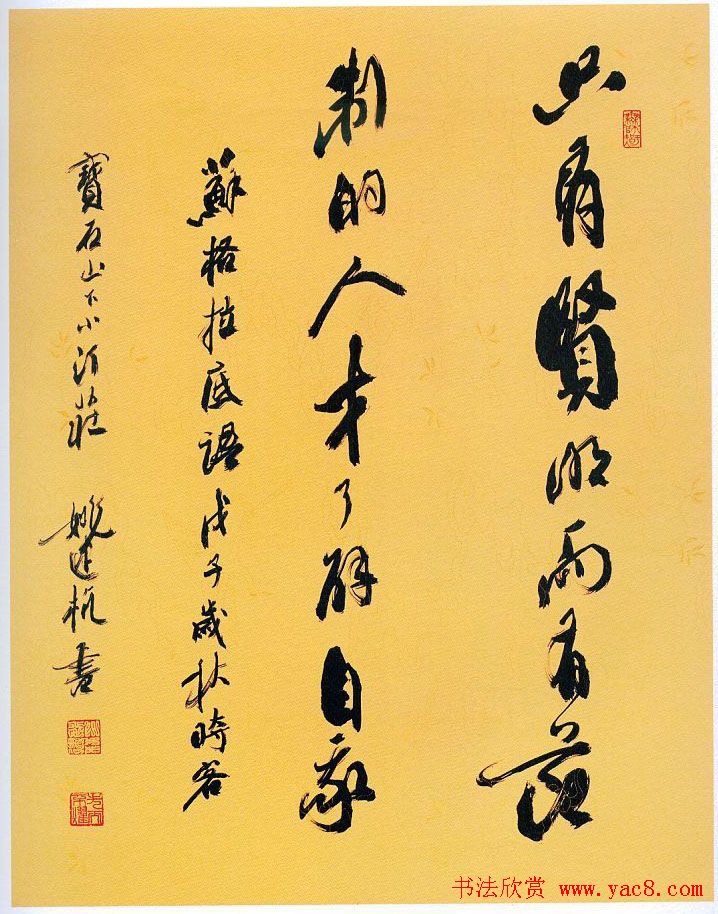 只有賢明而有節
制的人才了解自我
蘇格拉底語戊子歲秋時客
寶石山下小河莊 姚建杭書
书法欣赏 www.yac8.com